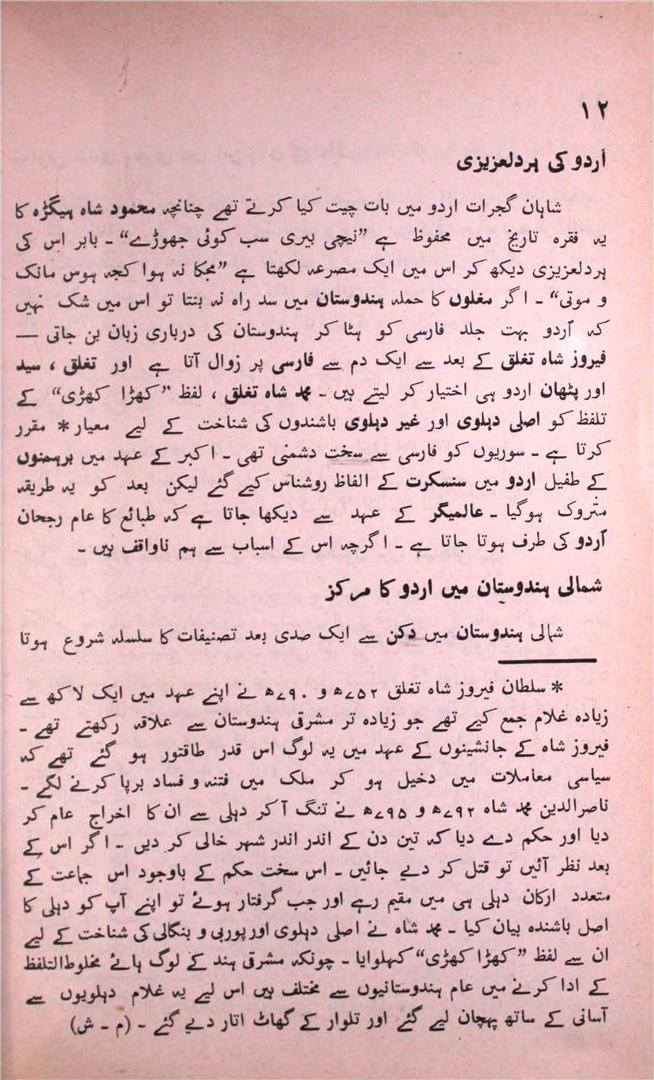 ۱۲
اُردو کی ہردلعزیزی
شاہان گجرات اردو میں بات چیت کیا کرتے تھے چنانچہ محمود شاہ بیگڑہ کا
یہ فقرہ تاریخ میں محفوظ ہے ”نیچی بیری سب کوئی جھوڑے“ ۔ بابر اس کی
ہردلعزیزی دیکھ کر اس میں ایک مصرعہ لکھتا ہے ”مجکا نہ ہوا کجہ ہوس مانک
و موتی“ ۔ اگر مغلوں کا حملہ ہندوستان میں سد راہ نہ بنتا تو اس میں شک نہیں
کہ اُردو بہت جلد فارسی کو ہٹا کر ہندوستان کی درباری زبان بن جاتی —
فیروز شاہ تغلق کے بعد سے ایک دم سے فارسی پر زوال آتا ہے اور تغلق ، سید
اور پٹھان اردو ہی اختیار کر لیتے ہیں ۔ محمد شاہ تغلق ، لفظ ”کھڑا کھڑی“ کے
تلفظ کو اصلی دہلوی اور غیر دہلوی باشندوں کی شناخت کے لیے معیار* مقرر
کرتا ہے ۔ سوریوں کو فارسی سے سخت دشمنی تھی ۔ اکبر کے عہد میں برہمنوں
کے طفیل اردو میں سنسکرت کے الفاظ روشناس کیے گئے لیکن بعد کو یہ طریقہ
متروک ہوگیا ۔ عالمیگر کے عہد سے دیکھا جاتا ہے کہ طبائع کا عام رجحان
اُردو کی طرف ہوتا جاتا ہے ۔ اگرچہ اس کے اسباب سے ہم ناواقف ہیں ۔
شمالی ہندوستان میں اردو کا مرکز
شمالی ہندوستان میں دکن سے ایک صدی بعد تصنیفات کا سلسلہ شروع ہوتا
* سلطان فیروز شاہ تغلق ۷۵۲ھ و ۷۹۰ھ نے اپنے عہد میں ایک لاکھ سے
زیادہ غلام جمع کیے تھے جو زیادہ تر مشرقی ہندوستان سے علاقہ رکھتے تھے ۔
فیروز شاہ کے جانشینوں کے عہد میں یہ لوگ اس قدر طاقتور ہو گئے تھے کہ
سیاسی معاملات میں دخیل ہو کر ملک میں فتنہ و فساد برپا کرنے لگے ۔
ناصرالدین محمد شاہ ۷۹۲ھ و ۷۹۵ھ نے تنگ آ کر دہلی سے ان کا اخراج عام کر
دیا اور حکم دے دیا کہ تین دن کے اندر اندر شہر خالی کر دیں ۔ اگر اس کے
بعد نظر آئیں تو قتل کر دیے جائیں ۔ اس سخت حکم کے باوجود اس جماعت کے
متعدد ارکان دہلی ہی میں مقیم رہے اور جب گرفتار ہوئے تو اپنے آپ کو دہلی کا
اصل باشندہ بیان کیا ۔ محمد شاہ نے اصلی دہلوی اور پوربی و بنگالی کی شناخت کے لیے
ان سے لفظ ”کھڑا کھڑی“ کہلوایا ۔ چونکہ مشرقی ہند کے لوگ ہائے مخلوط التلفظ
کے ادا کرنے میں عام ہندوستانیوں سے مختلف ہیں اس لیے یہ غلام دہلویوں سے
آسانی کے ساتھ پہچان لیے گئے اور تلوار کے گھاٹ اتار دیے گئے ۔ (م ۔ ش)